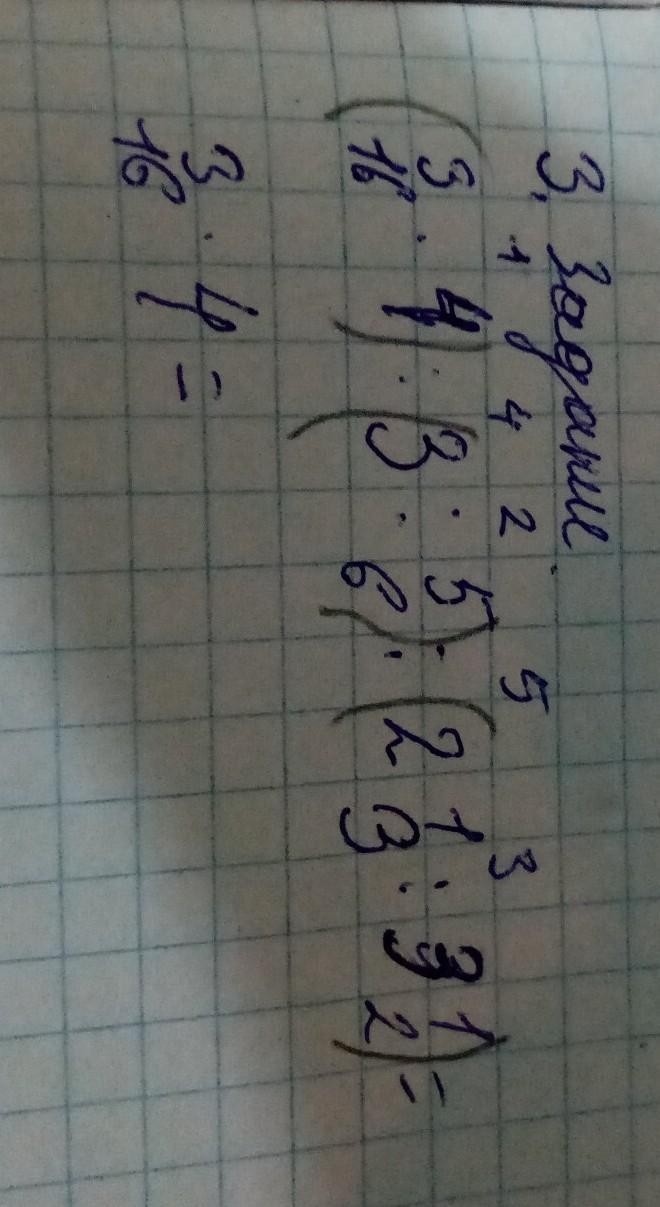 3. Задание
1 4 2 5 3
(3/16 · 4) · (3 : 5/6) : (2 1/3 : 3 1/2) =
3/16 · 4 =